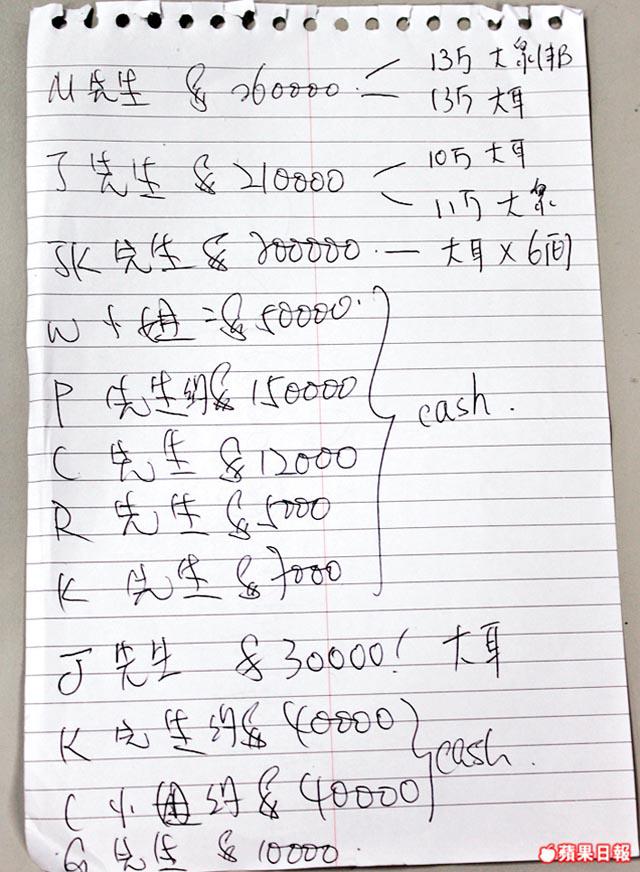 M先生 $260000 13万 大眾邦
13万 大耳
J先生 $210000 10万 大耳
11万 大眾
JK先生 $200000 — 大耳×6间
W小姐 = $50000
P 先生约$150000
cash.
C 先生 $12000
R 先生 $5000
K 先生 $7000
J先生 $30000! 大耳
K 先生约$40000
cash.
C 小姐约$40000
G 先生 $10000
蘋果日報